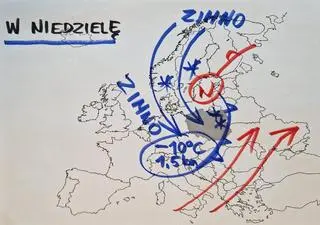 W NIEDZIELĘ
ZIMNO
ZIMNO
N
-10°C
1,5 km